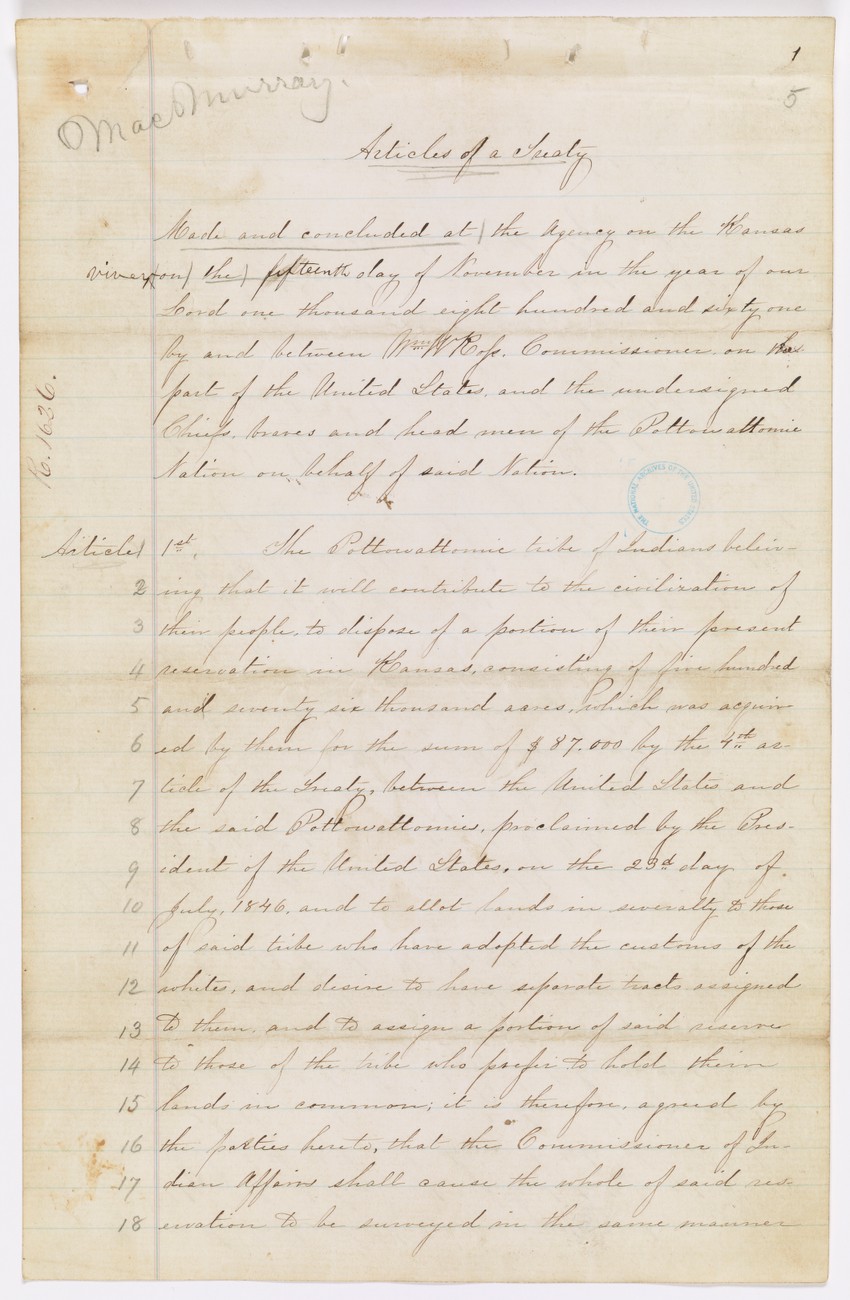 1
5
MacMurray.
Articles of a Treaty
Made and concluded at the Agency on the Kansas
river, on the fifteenth day of November in the year of our
Lord one thousand eight hundred and sixty one
by and between Wm W Ross. Commissioner on the
part of the United States, and the undersigned
Chiefs, braves and head men of the Pottowattomie
Nation on behalf of said Nation.
R. 1626.
THE NATIONAL ARCHIVES OF THE UNITED STATES
Article 1st. The Pottowattomie tribe of Indians beleiv-
2 ing that it will contribute to the civilization of
3 their people, to dispose of a portion of their present
4 reservation in Kansas, consisting of five hundred
5 and seventy six thousand acres, which was acquir
6 ed by them for the sum of $87.000 by the 4th ar-
7 ticle of the Treaty, between the United States and
8 the said Pottowattomies, proclaimed by the Pres-
9 ident of the United States, on the 23d day of
10 July, 1846, and to allot lands in severalty to those
11 of said tribe who have adopted the customs of the
12 whites, and desire to have separate tracts assigned
13 to them, and to assign a portion of said reserve
14 to those of the tribe who prefer to hold their
15 lands in common; it is therefore, agreed by
16 the parties hereto, that the Commissioner of In-
17 dian Affairs shall cause the whole of said res-
18 ervation to be surveyed in the same manner